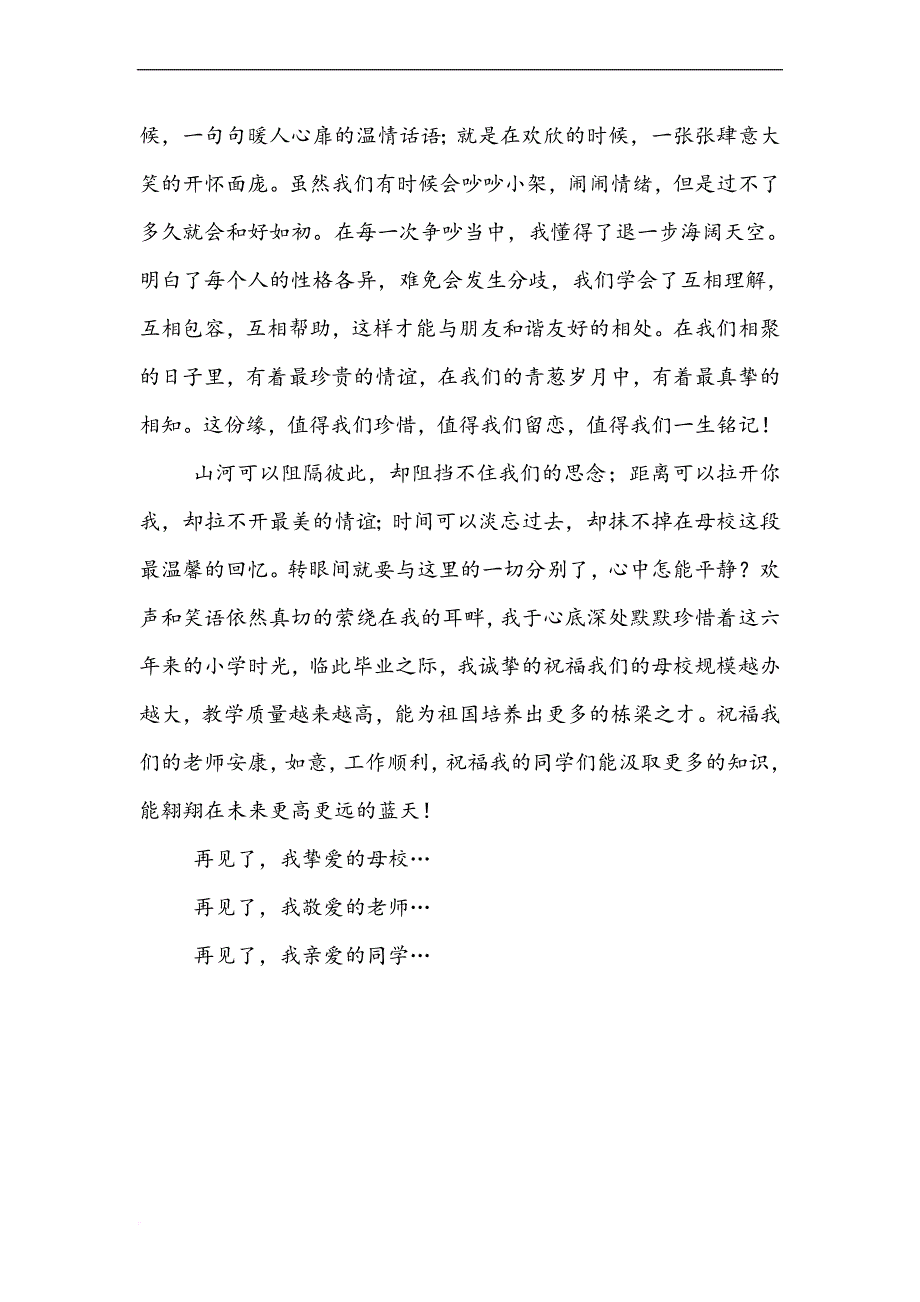 候，一句句暖人心扉的温情话语；就是在欢欣的时候，一张张肆意大
笑的开怀面庞。虽然我们有时候会吵吵小架，闹闹情绪，但是过不了
多久就会和好如初。在每一次争吵当中，我懂得了退一步海阔天空。
明白了每个人的性格各异，难免会发生分歧，我们学会了互相理解，
互相包容，互相帮助，这样才能与朋友和谐友好的相处。在我们相聚
的日子里，有着最珍贵的情谊，在我们的青葱岁月中，有着最真挚的
相知。这份缘，值得我们珍惜，值得我们留恋，值得我们一生铭记！
山河可以阻隔彼此，却阻挡不住我们的思念；距离可以拉开你
我，却拉不开最美的情谊；时间可以淡忘过去，却抹不掉在母校这段
最温馨的回忆。转眼间就要与这里的一切分别了，心中怎能平静？欢
声和笑语依然真切的萦绕在我的耳畔，我于心底深处默默珍惜着这六
年来的小学时光，临此毕业之际，我诚挚的祝福我们的母校规模越办
越大，教学质量越来越高，能为祖国培养出更多的栋梁之才。祝福我
们的老师安康，如意，工作顺利，祝福我的同学们能汲取更多的知识，
能翱翔在未来更高更远的蓝天！
再见了，我挚爱的母校…
再见了，我敬爱的老师…
再见了，我亲爱的同学…